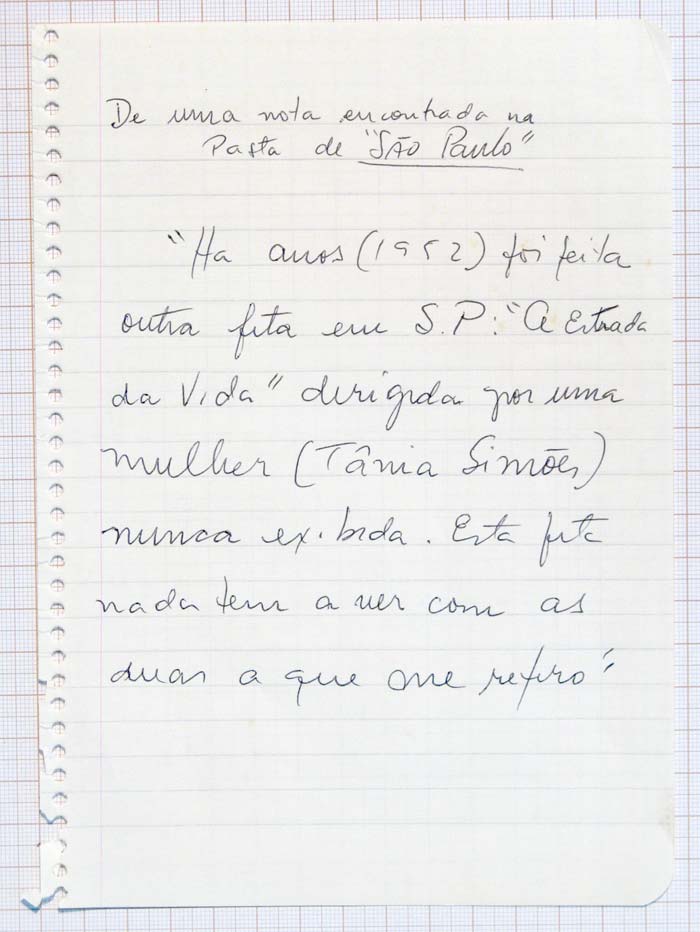 De uma nota encontrada na
Pasta de "SÃO Paulo"
"Ha anos (1952) foi feita
outra fita em S.P.: "A Estrada
da Vida" dirigida por uma
mulher (Tânia Simões)
nunca exibida. Esta fita
nada tem a ver com as
duas a que me refiro"